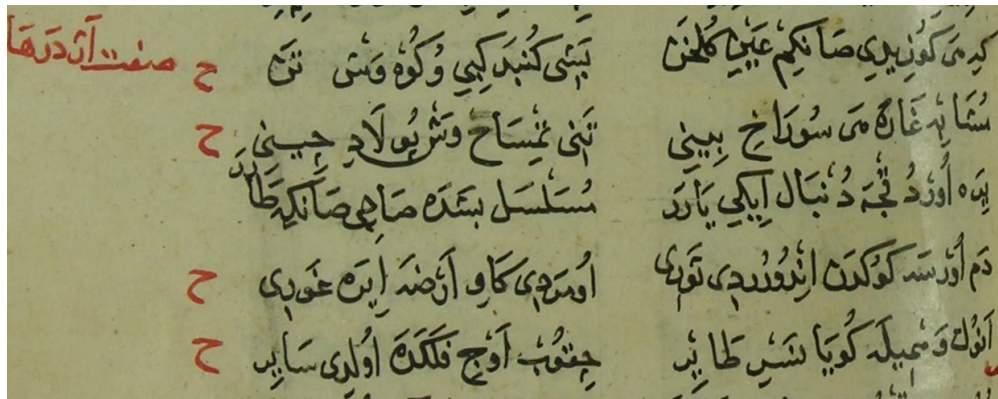 صفت اژدرها
كدمى كوزيدى صانكم عين كلخن بشى كنبد كبى و كوه وش تن ح
مشابه غاره مى سوراخ بينى تنى تمساح وش پولاد چينى ح
يره اوردقجه دنبال ايكى يارر مسلسل بشده صاچى صانكه
دم اورسه كوكدن اندوردى ثورى اومردى كاو ارضه ايره غورى ح
انوك دميله كويا نسر طاير چقوب اوج فلكده اولدى ساير ح